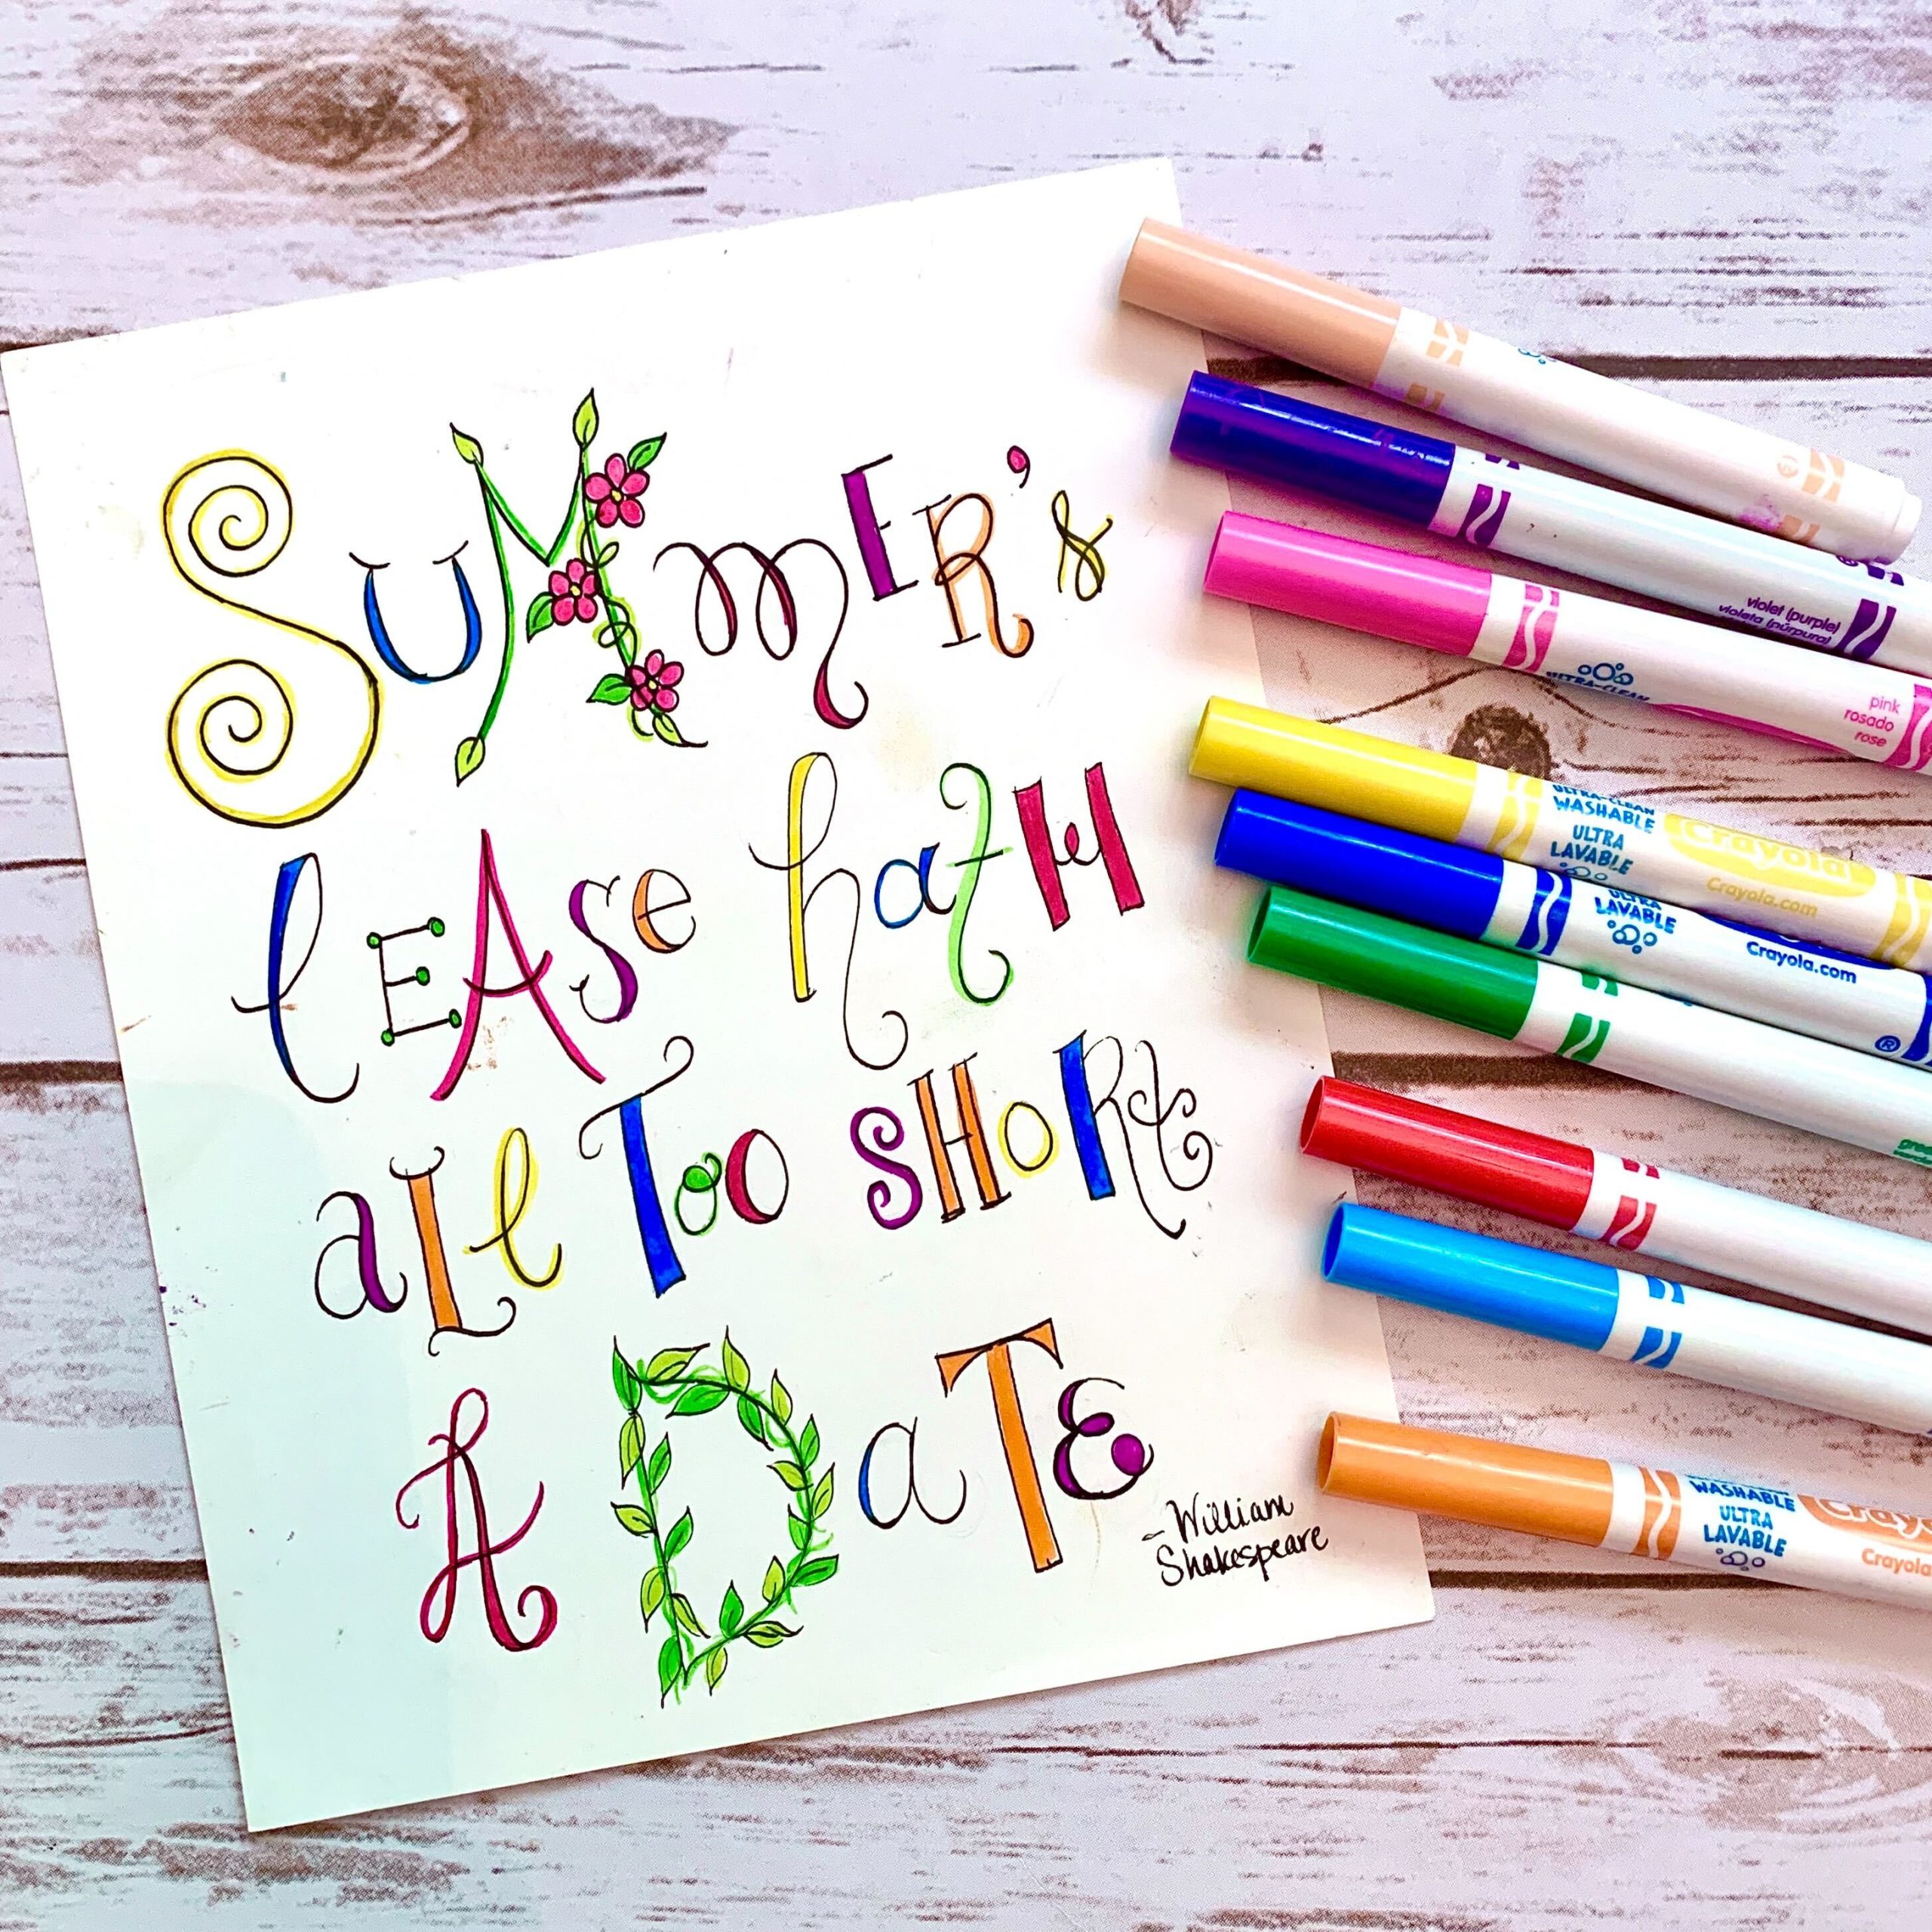 SuMmER's
lEAse hatH
aLl Too SHORt
A DaTE
- William
Shakespeare
violet (purple)
violeta (púrpura)
ULTRA-CLEAN
pink
rosado
rose
ULTRA-CLEAN
WASHABLE
ULTRA
LAVABLE
Crayola
Crayola.com
ULTRA
LAVABLE
Crayola.com
®
WASHABLE
ULTRA
LAVABLE